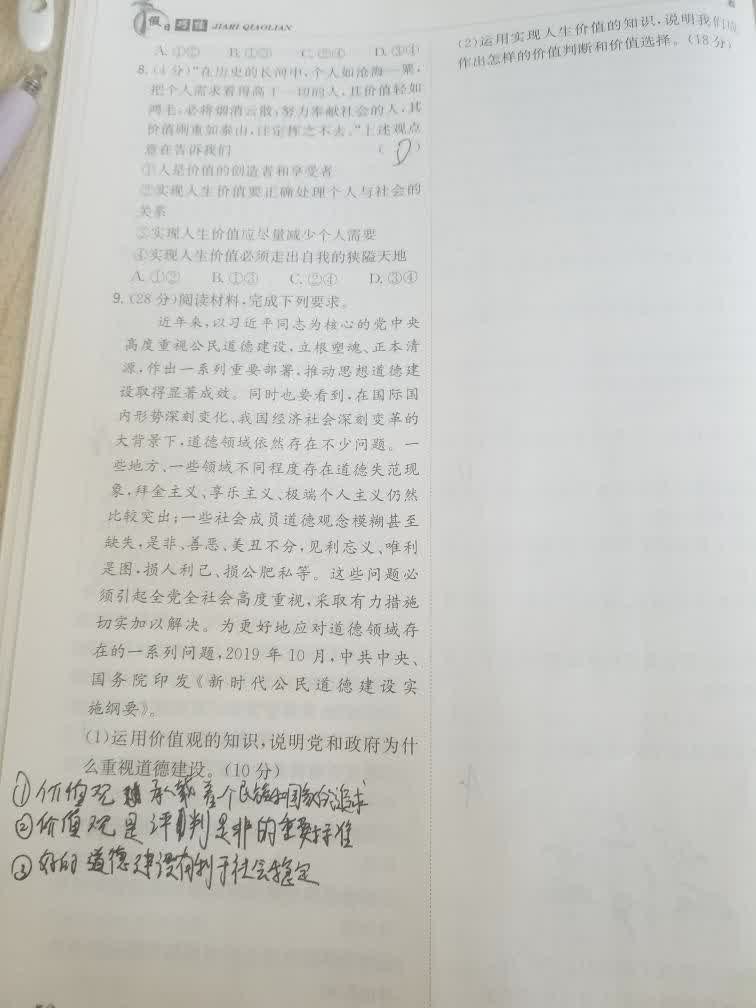 假日巧练 JIARI QIAOLIAN
A.①② B.①③ C.②④ D.③④
8.(4分)“在历史的长河中,个人如沧海一粟,
把个人需求看得高于一切的人,其价值轻如
鸿毛,必将烟消云散;努力奉献社会的人,其
价值则重如泰山,注定挥之不去。”上述观点
意在告诉我们 ( D )
①人是价值的创造者和享受者
②实现人生价值要正确处理个人与社会的
关系
③实现人生价值应尽量减少个人需要
④实现人生价值必须走出自我的狭隘天地
A.①② B.①③ C.②④ D.③④
9.(28分)阅读材料,完成下列要求。
近年来,以习近平同志为核心的党中央
高度重视公民道德建设,立根塑魂、正本清
源,作出一系列重要部署,推动思想道德建
设取得显著成效。同时也要看到,在国际国
内形势深刻变化、我国经济社会深刻变革的
大背景下,道德领域依然存在不少问题。一
些地方、一些领域不同程度存在道德失范现
象,拜金主义、享乐主义、极端个人主义仍然
比较突出;一些社会成员道德观念模糊甚至
缺失,是非、善恶、美丑不分,见利忘义、唯利
是图,损人利己、损公肥私等。这些问题必
须引起全党全社会高度重视,采取有力措施
切实加以解决。为更好地应对道德领域存
在的一系列问题,2019年10月,中共中央、
国务院印发《新时代公民道德建设实
施纲要》。
(1)运用价值观的知识,说明党和政府为什
么重视道德建设。(10分)
①价值观承载着个民族和国家的追求
②价值观是评判是非的重要标准
③好的道德建设有利于社会稳定
(2)运用实现人生价值的知识,说明我们应
作出怎样的价值判断和价值选择。(18分)